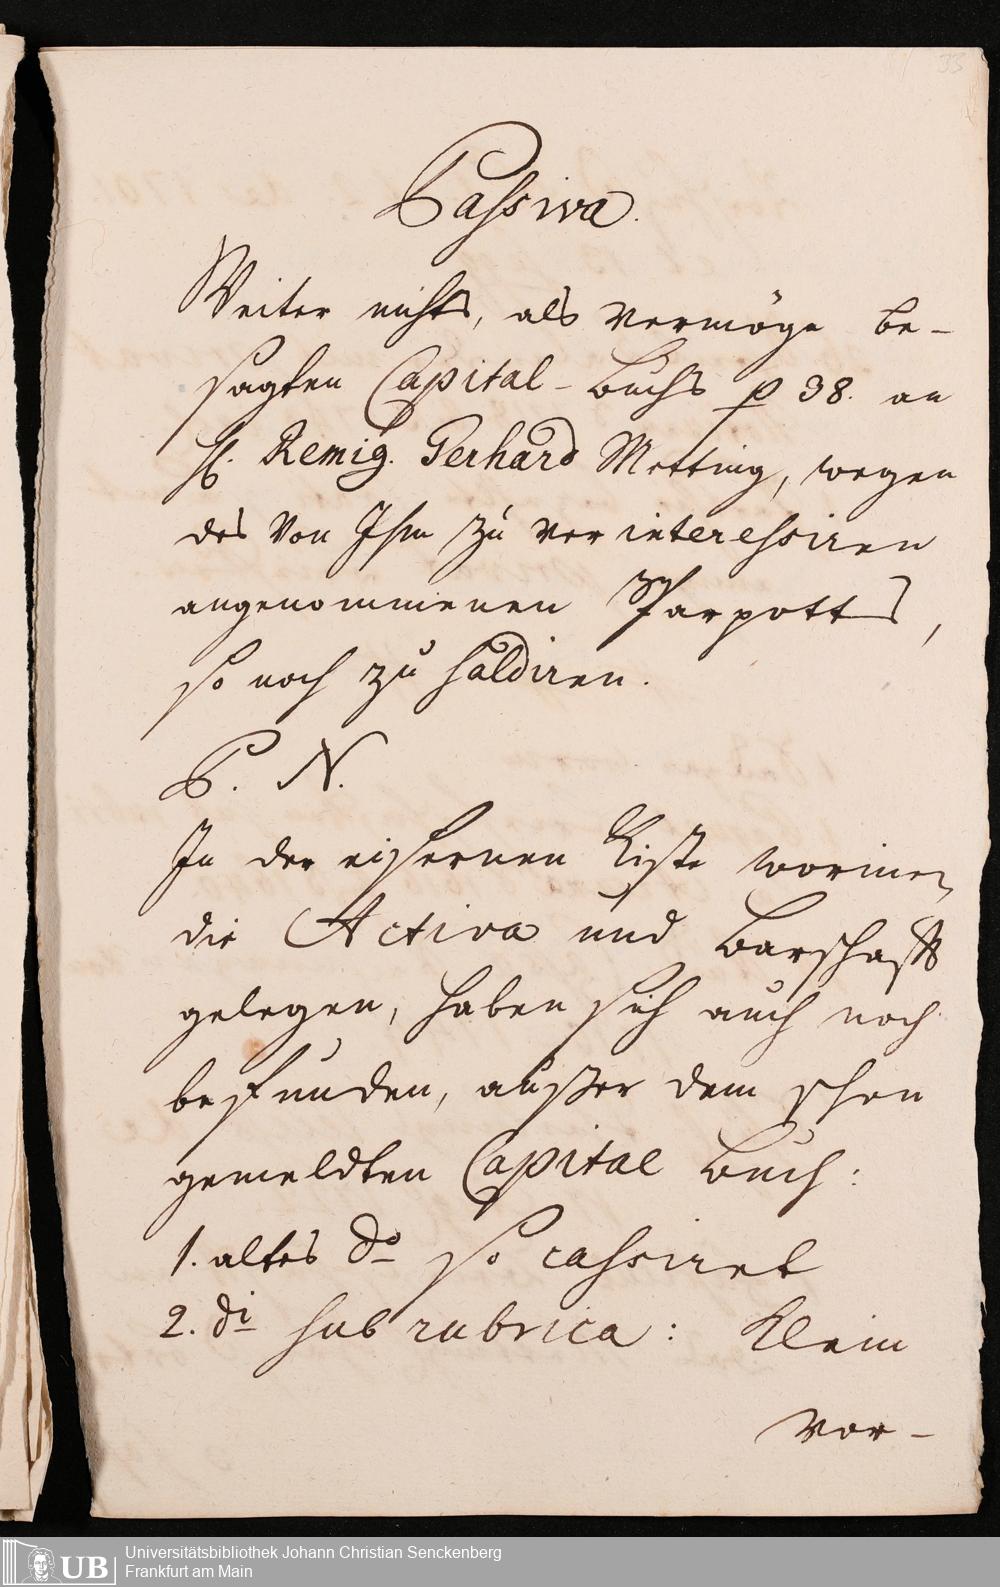 33
Passiva.
Weiter nichts, als vermöge be-
sagten Capital-Buchs p 38. an
H. Remig. Gerhard Metting, wegen
des von Ihm zu verinteressiren
angenommenen Sparpotts,
so noch zu saldiren.
P. N.
In der eisernen Kiste worinen
die Activa und Barschafft
gelegen, haben sich auch noch
befunden, außer dem schon
gemeldten Capital Buch:
1. altes do so cassiret
2. di sub rubrica: Klein
vor-
UB
Universitätsbibliothek Johann Christian Senckenberg
Frankfurt am Main